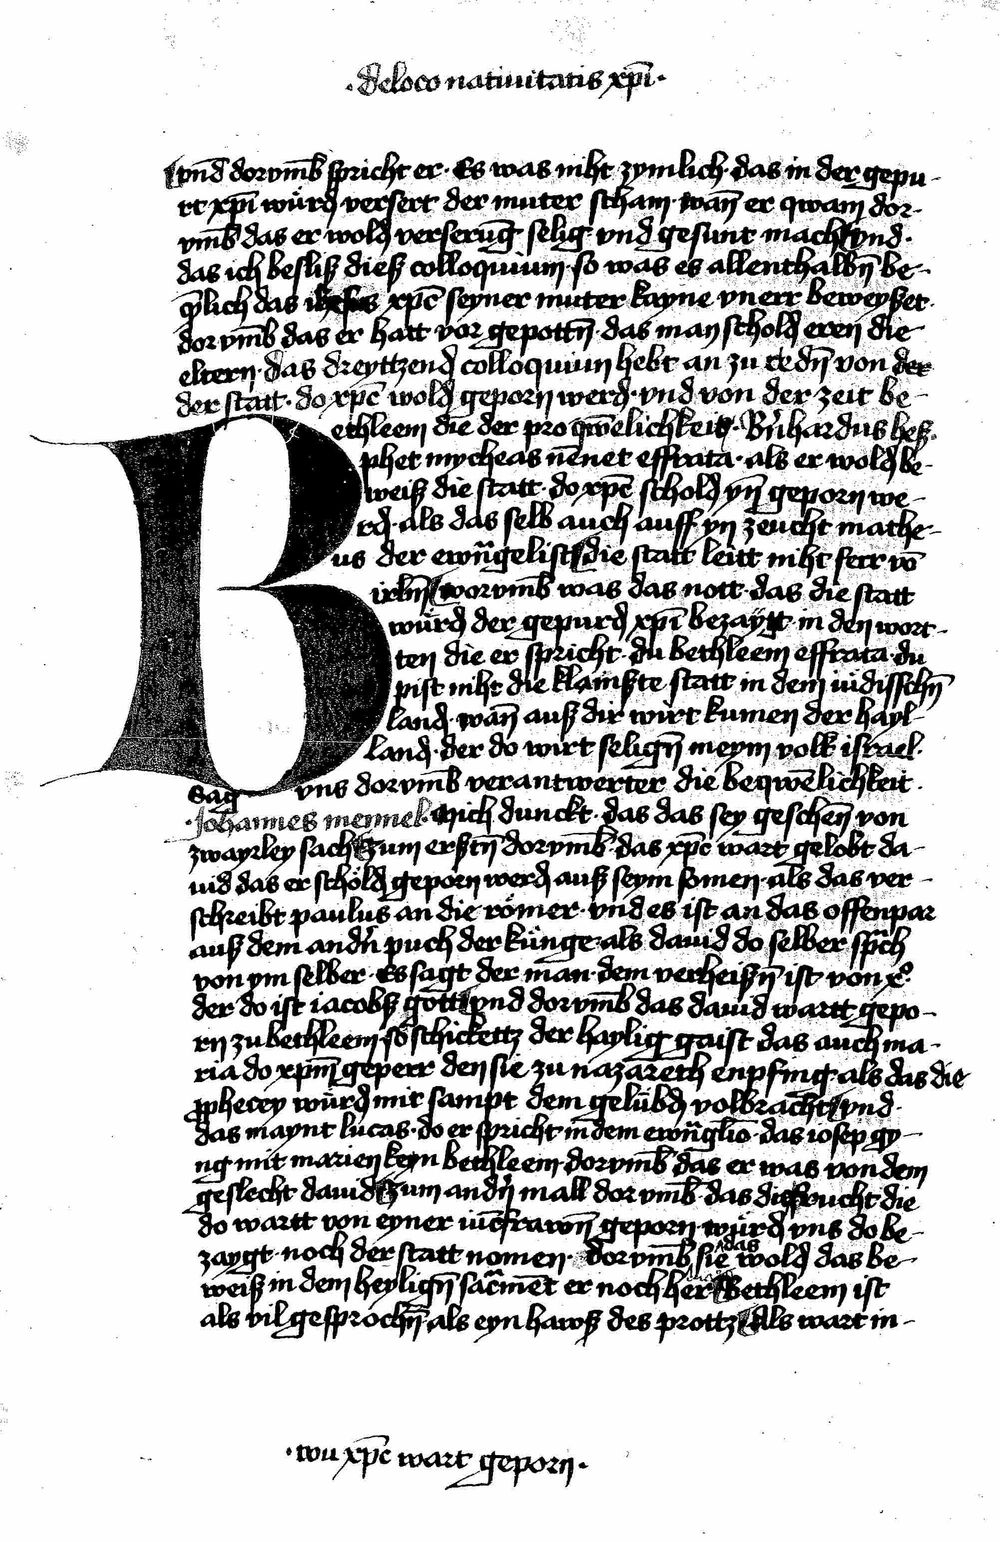 · de loco natiuitatis xp̄i ·
vnd dorvm̄b spricht er · Es was niht zymlich · das in der gepu-
rt xp̄i würd versert der muter scham · wan̄ er qwam dor-
vm̄b das er wold verserūg selig vnd gesunt mach vnd ·
das ich besliß dieß colloquium · so was es allenthalbn̄ be-
q̄lich das ihesus xp̄c seyner muter kayne vnerr beweyßet ·
dorvm̄b das er hatt vor gepottn̄ · das man schold eren die
eltern · das dreyttzend colloquium hebt an zu redn̄ von der
der statt · do xp̄c wold geporn werd · vnd von der zeit be-
ethleem die der pro qwēlichkeit · Br̄nhardus heß ·
phet mycheas nēnet effrata · als er wold be-
weiß die statt · do xp̄c schold yn̄ geporn we-
rd · als das selb auch auff yn zeucht mathe-
us der ewn̄gelist die statt leitt niht ferr vō
irl̄m worvm̄b was das nott · das die statt
würd der gepurd xp̄i bezaygt · in den wort-
ten die er spricht · du bethleem effrata · du
pist niht die klainste statt in dem iudisschn̄
land · wan̄ auß dir wirt kumen der hayl-
land · der do wirt selign̄ meym volk israel ·
B
sag vns dorvm̄b verantwerter die beqwēlichkeit ·
· Johannes mennel · Mich dunckt · das das sey geschen̄ von
zwayrley sach zum erstn̄ dorvm̄b · das xp̄c wart gelobt da-
uid das er schöld geporn werd auß seym somen · als das ver-
schreibt paulus an die römer · vnd es ist an das offenpar
auß dem andn̄ puch der künge · als dauid do selber sp̄ch
von ym selber · Es sagt der man · dem verheißn̄ ist von x°
der do ist iacobß gott vnd dorvm̄b das dauid wartt gepo-
rn zu bethleem · so schickettz der haylig gaist das auch ma-
ria do xp̄m geperr den sie zu nazareth enpfing · als das die
ꝓphecey würd mit sampt dem gelübd volbracht vnd ·
das maynt lucas · do er spricht in dem ewn̄glio · das iosep gy-
ng mit marien keyn bethleem dorvm̄b das er was von dem
geslecht dauid zum andn̄ mall dorvm̄b · das die frucht die
do wartt von eyner iūcfrawn̄ geporn würd vns do be-
zaygt · noch der statt nomen · dorvm̄b sie das wold das be-
weiß in dem heylign̄ sac̄mēt er noch her Bethleem ist
als vil gesprochn̄ als eyn hawß des prottz Als wart in-
· wu xp̄c wart geporn ·